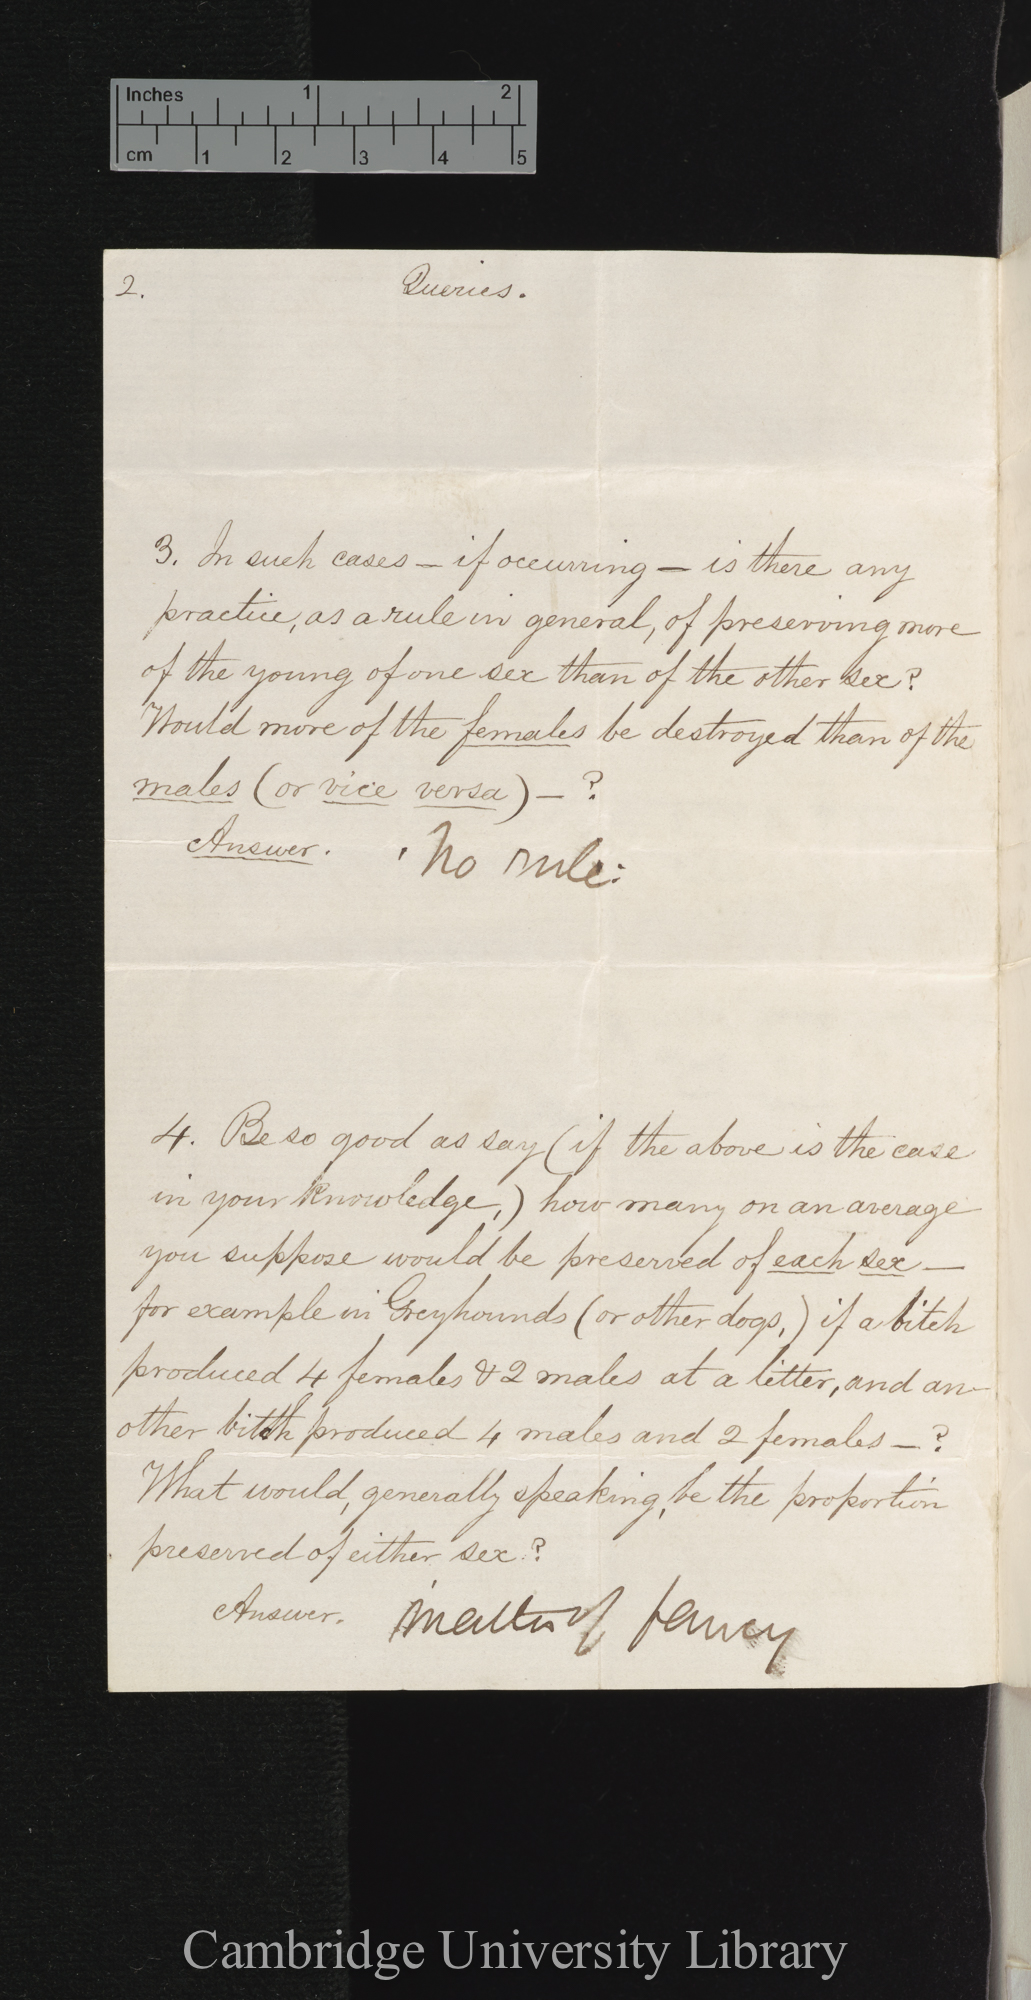 Inches 1 2
cm 1 2 3 4 5
2. Queries.
3. In such cases – if occurring – is there any
practice, as a rule in general, of preserving more
of the young of one sex than of the other sex?
Would more of the females be destroyed than of the
males (or vice versa) – ?
Answer. No rule:
4. Be so good as say (if the above is the case
in your knowledge,) how many on an average
you suppose would be preserved of each sex –
for example in Greyhounds (or other dogs,) if a bitch
produced 4 females & 2 males at a litter, and an-
other bitch produced 4 males and 2 females – ?
What would, generally speaking, be the proportion
preserved of either sex?
Answer. matter of fancy
Cambridge University Library